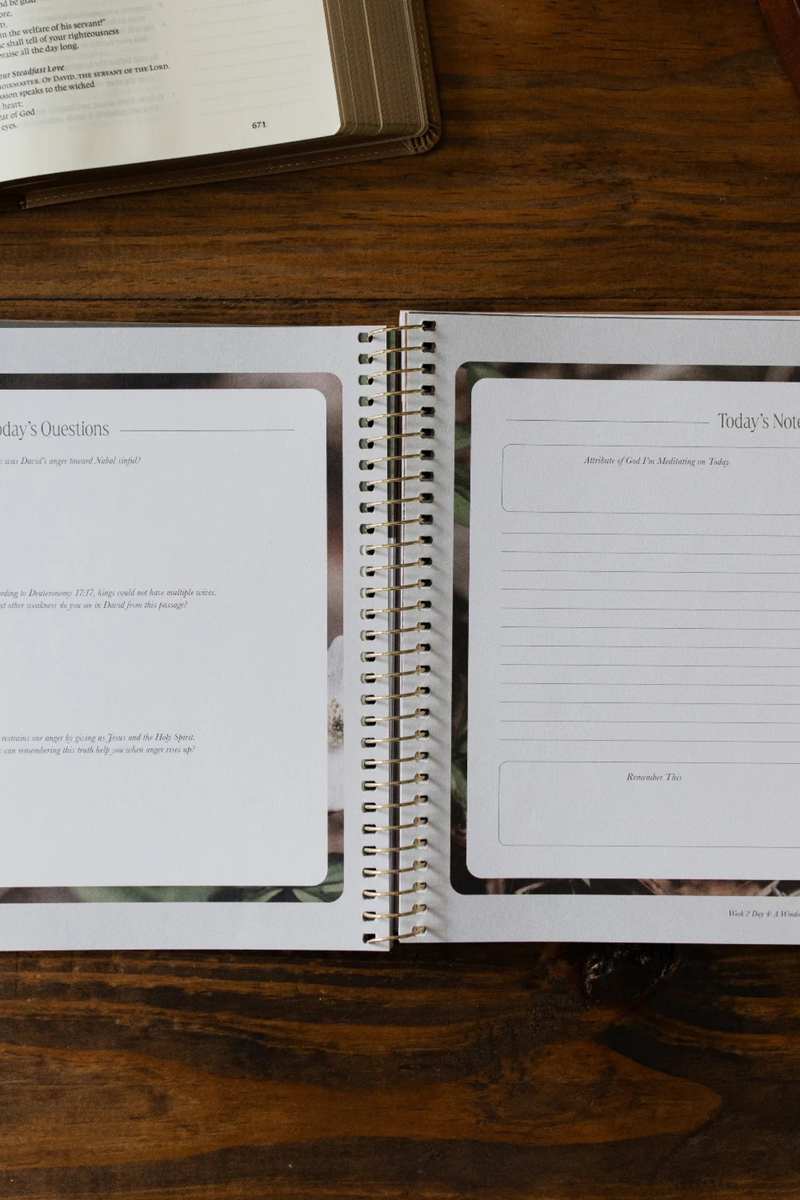 and be glad
ore,
D,
in the welfare of his servant!"
e shall tell of your righteousness
praise all the day long.
our Steadfast Love
HOIRMASTER. OF DAVID, THE SERVANT OF THE LORD.
ssion speaks to the wicked
heart;
ear of God
eyes.
671
oday's Questions
was David's anger toward Nabal sinful?
ording to Deuteronomy 17:17, kings could not have multiple wives.
at other weakness do you see in David from this passage?
restrains our anger by giving us Jesus and the Holy Spirit.
can remembering this truth help you when anger rises up?
Today's Note
Attribute of God I'm Meditating on Today
Remember This
Week 2 Day 4: A Wande